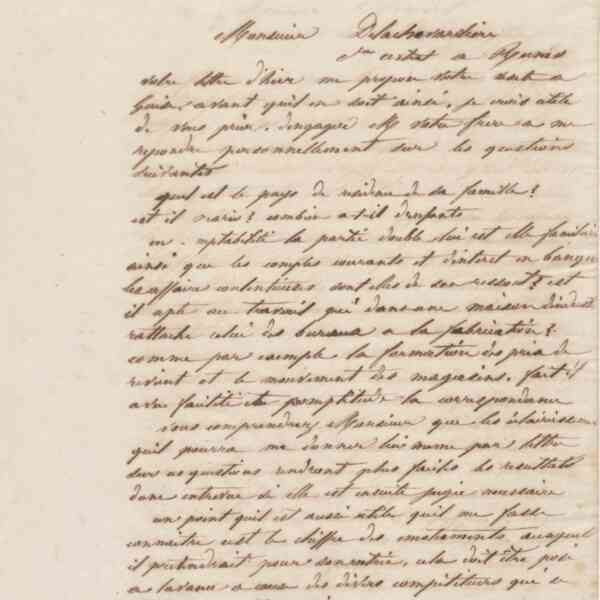 Monsieur Delachevardiere
votre lettre d'hier me propose votre
Guise, avant qu'il en soit ainsi, je crois utile
de vous prier d'engager M votre frere a me
repondre personnellement sur les questions
suivantes
quel est le pays de residence de sa famille?
est il marié? combien a t-il d'enfants
en comptabilité la partie double lui est elle familiere
ainsi que les comptes courants et d'interet en banque
les affaires contentieuses sont elles de son ressort? est
il apte au travail qui dans une maison d'indust
rattache celui des bureaux a la fabrication?
comme par exemple la formation des prix de
revient et le mouvement des magasins. fait il
avec facilité et promptitude la correspondance
vous comprendrez Monsieur que les éclaircissemen
qu'il pourra me donner lui meme par lettre
sur ces questions rendront plus faciles les resultats
d'une entrevue si elle est ensuite jugée necessaire
un point qu'il est aussi utile qu'il me fasse
connaitre c'est le chiffre des emoluments auxquel
il pretendrait pour son entrée, cela doit être posé
a l'avance a cause des divers competiteurs qui